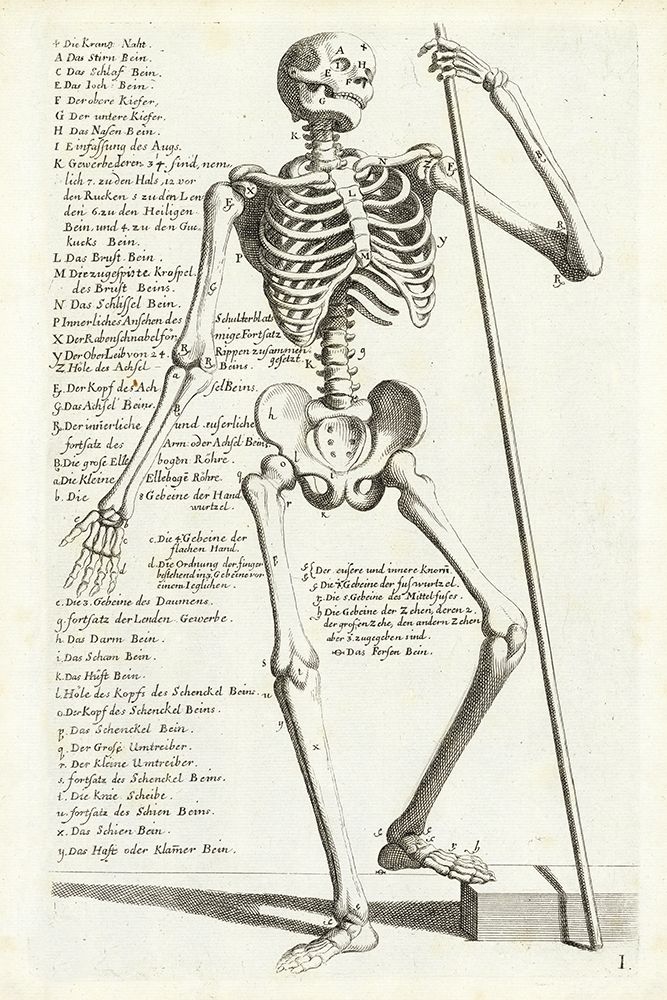 + Die Krantz Naht.
A Das Stirn Bein.
C Das Schlaf Bein.
E Das Ioch Bein.
F Der obere Kiefer,
G Der untere Kiefer.
H Das Nasen Bein.
I Einfassung des Augs.
K Gewerbe deren 34. sind, nem,
lich 7. zu den Hals, 12 vor
den Rucken 5 zu den Len
den 6. zu den Heiligen
Bein, und 4. zu den Guc
kucks Bein.
L Das Brust Bein.
M Die zugespiste Krospel
des Brust Beins.
N Das Schlüssel Bein.
P Innerliches Ansehen des Schulterblats
X Der Rabenschnabelför mige Fortsatz
Y Der Ober Leib von 24. Rippen zusammen
gesetzt.
Z Höle des Achsel Beins.
E. Der Kopf des Ach sel Beins.
G. Das Achsel Bein.
R. Der innerliche und euserliche
fortsatz des Arm oder Achsel Bein
B. Die grose Elle bogen Röhre.
a. Die Kleine Ellebogē Röhre.
b. Die 8 Gebeine der Hand
wurtzel.
c. Die 4. Gebeine der
flachen Hand.
d. Die Ordnung der finger
bestehend in 3. Gebeine vor
einem Ieglichen.
e. Die 3. Gebeine des Daumens.
g. fortsatz der Lenden Gewerbe.
h. Das Darm Bein.
i. Das Scham Bein.
k. Das Hüft Bein.
l. Höle des Kopfs des Schenckel Beins.
o. Der Kopf des Schenckel Beins.
p. Das Schenckel Bein.
q. Der Grose Umtreiber.
r. Der kleine Umtreiber.
s. fortsatz des Schenckel Beins.
t. Die Knie Scheibe.
u. fortsatz des Schien Beins.
x. Das Schien Bein.
y. Das Haft oder Klam̄er Bein.
Der eusere und innere Knorn̄
Die 7. Gebeine der fuswurtzel.
Die 5. Gebeine des Mittelfuses.
h Die Gebeine der Zehen, deren 2.
der grosen Zehe, den andern Zehen
aber 3. zugegeben sind.
Das Fersen Bein.
I.